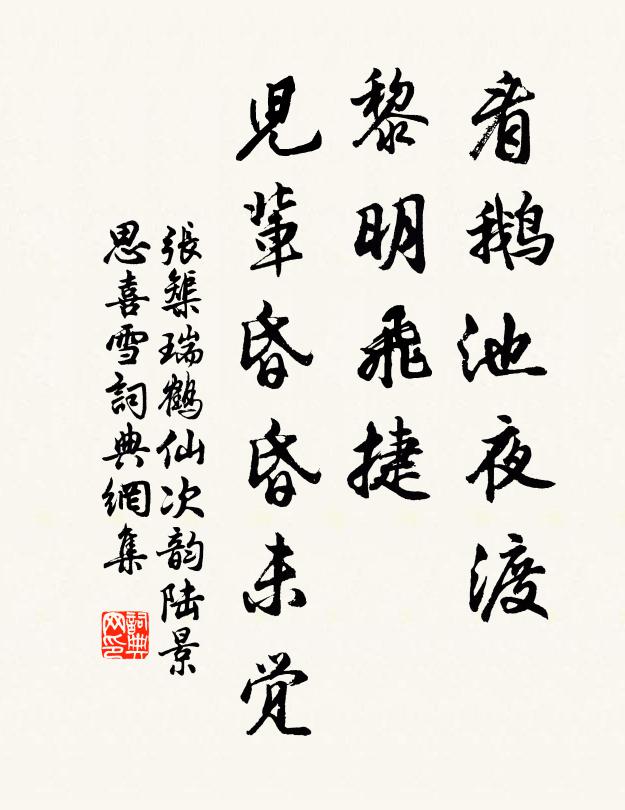 看鹅池夜渡
黎明飛捷
児輩昏昏未觉
張榘瑞鶴仙次韵陆景
思喜雪詞典網集
詞典网印